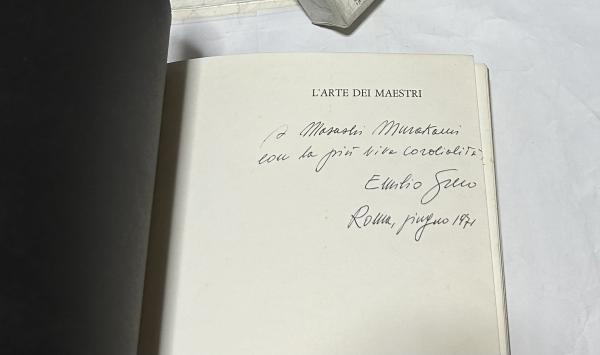 L'ARTE DEI MAESTRI
a Masashi Murakami
con la più viva cordialità,
Emilio Greco
Roma, giugno 1971